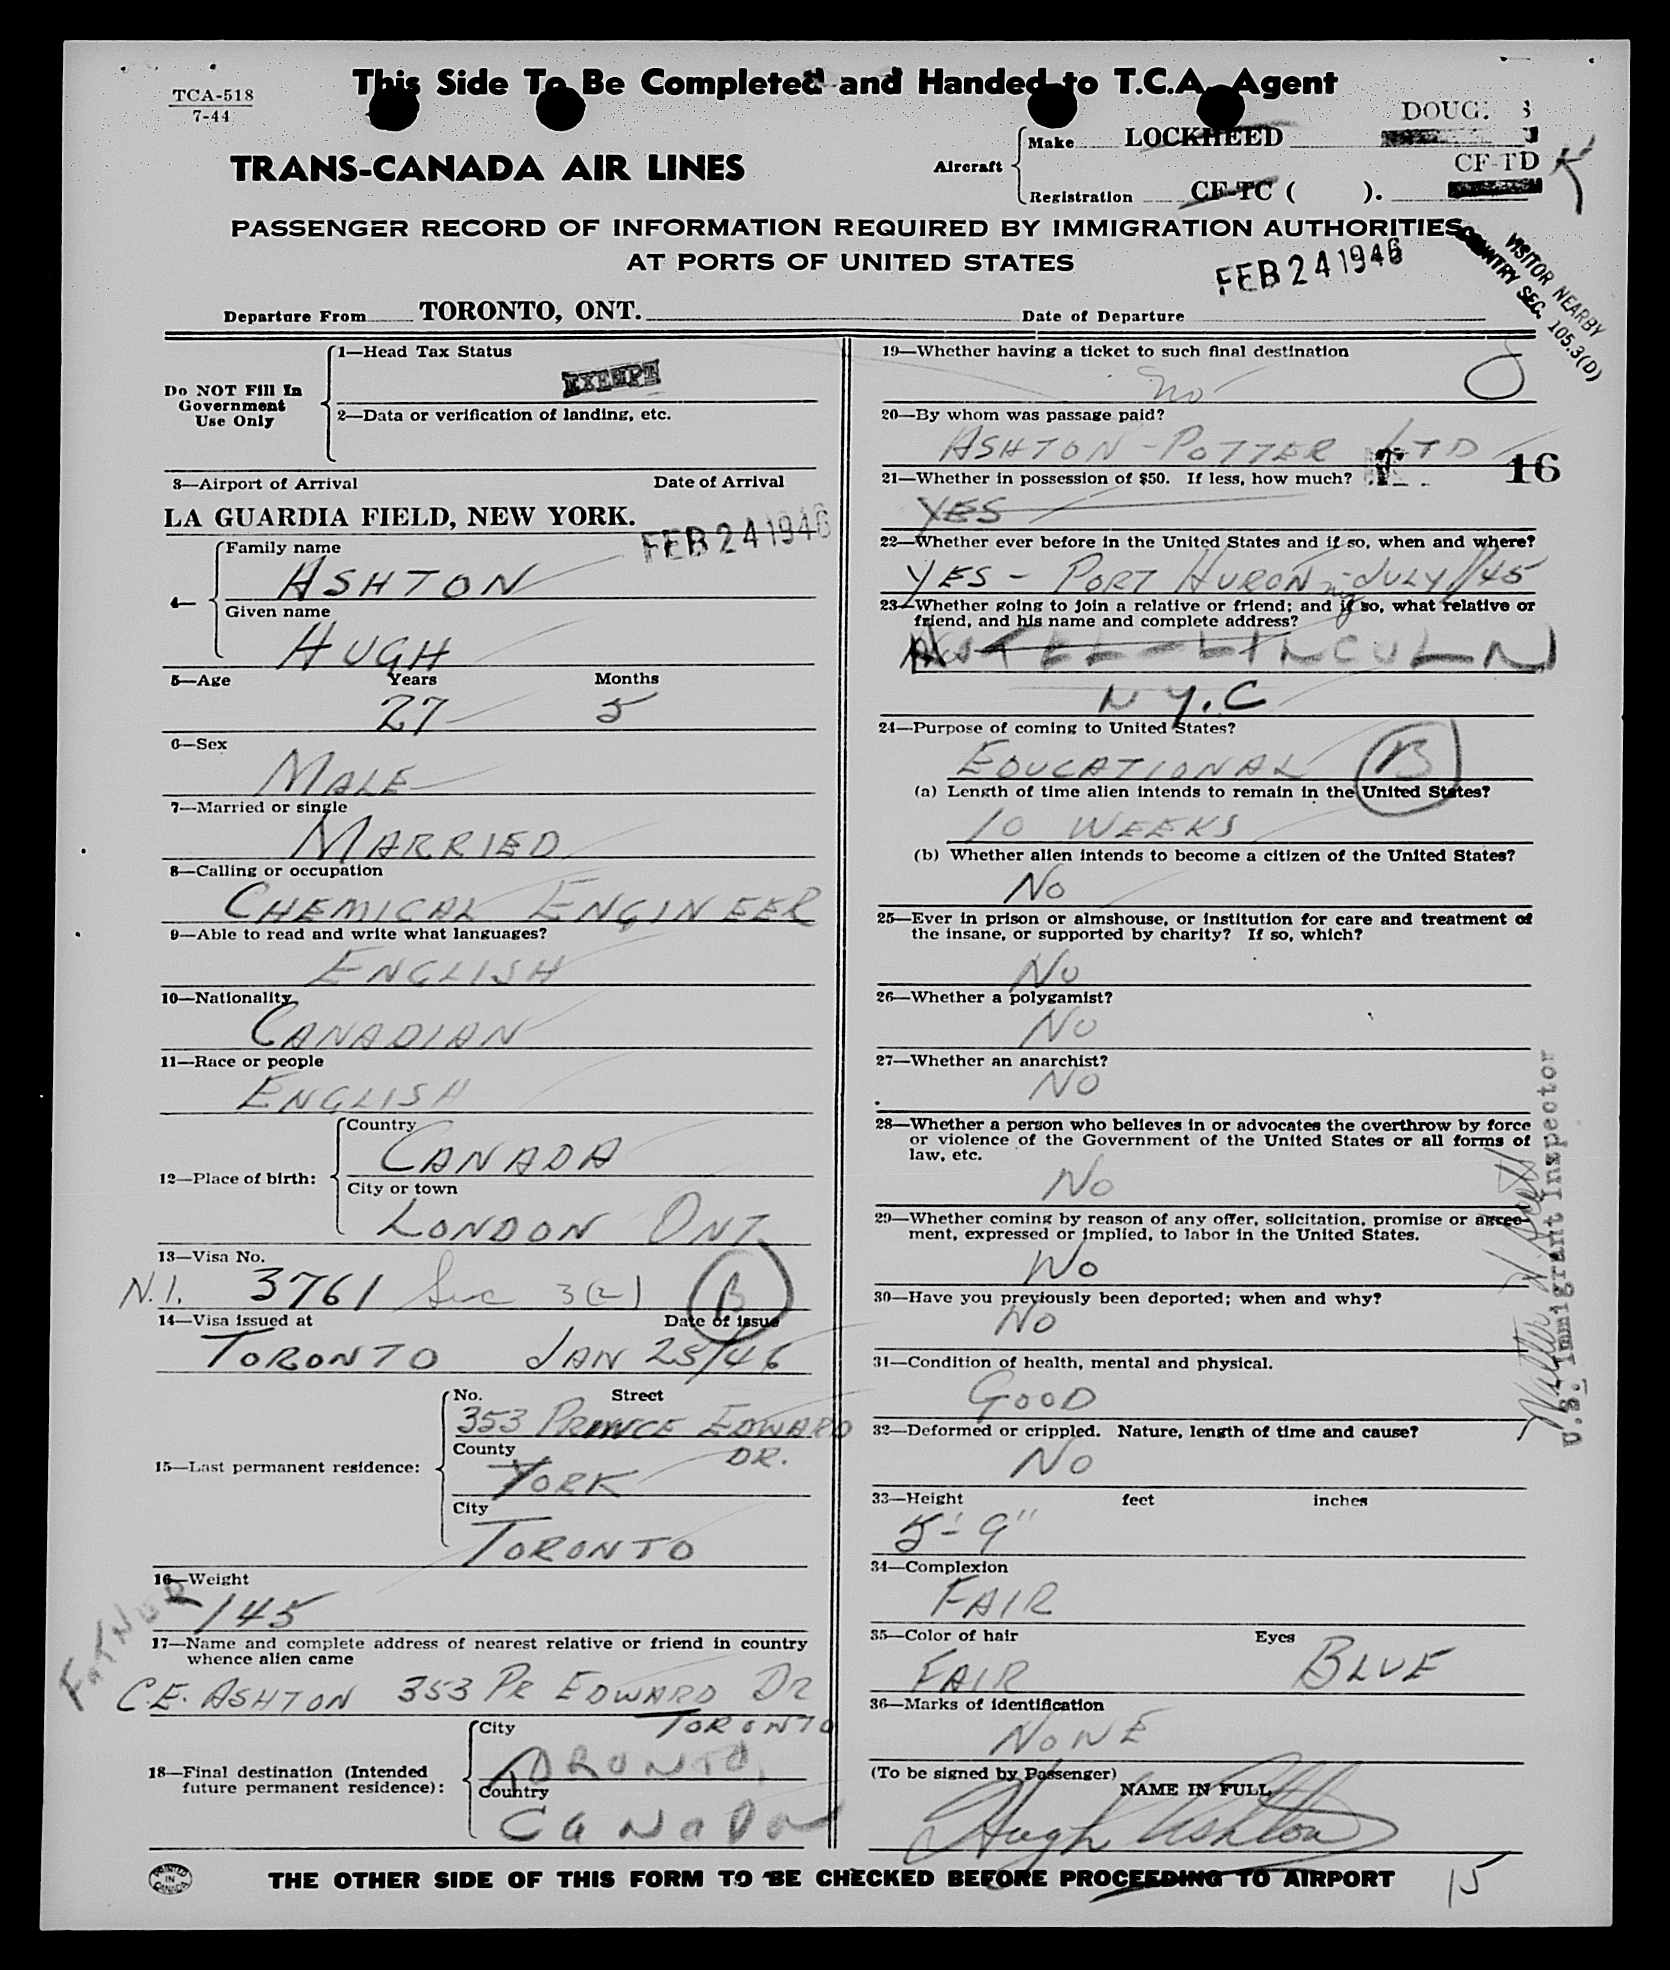 This Side To Be Completed and Handed to T.C.A. Agent
TCA-518
7-44
TRANS-CANADA AIR LINES
Aircraft
Make LOCKHEED
Registration CF-TC ( ).
CF-TD K
PASSENGER RECORD OF INFORMATION REQUIRED BY IMMIGRATION AUTHORITIES
AT PORTS OF UNITED STATES
FEB 24 1946
VISITOR NEARBY
COUNTRY SEC. 105.3(D)
Departure From TORONTO, ONT. Date of Departure
Do NOT Fill In
Government
Use Only
1—Head Tax Status
EXEMPT
2—Data or verification of landing, etc.
3—Airport of Arrival Date of Arrival
LA GUARDIA FIELD, NEW YORK. FEB 24 1946
4—
Family name
ASHTON
Given name
HUGH
5—Age Years Months
27 5
6—Sex
MALE
7—Married or single
MARRIED
8—Calling or occupation
CHEMICAL ENGINEER
9—Able to read and write what languages?
ENGLISH
10—Nationality
CANADIAN
11—Race or people
ENGLISH
12—Place of birth:
Country
CANADA
City or town
LONDON ONT
13—Visa No.
N.I. 3761 Sec 3(2) B
14—Visa issued at Date of issue
TORONTO JAN 25/46
15—Last permanent residence:
No. Street
353 PRINCE EDWARD
DR.
County
YORK
City
TORONTO
16—Weight
145
FATHER
17—Name and complete address of nearest relative or friend in country
whence alien came
C.E. ASHTON 353 PR EDWARD DR
TORONTO
18—Final destination (Intended
future permanent residence):
City
TORONTO,
Country
CANADA
19—Whether having a ticket to such final destination
no
20—By whom was passage paid?
ASHTON-POTTER LTD
16
21—Whether in possession of $50. If less, how much?
YES
22—Whether ever before in the United States and if so, when and where?
YES - PORT HURON - JULY/45
23—Whether going to join a relative or friend; and if so, what relative or
friend, and his name and complete address?
HOTEL-LINCOLN
N.Y.C
24—Purpose of coming to United States?
EDUCATIONAL B
(a) Length of time alien intends to remain in the United States?
10 WEEKS
(b) Whether alien intends to become a citizen of the United States?
NO
25—Ever in prison or almshouse, or institution for care and treatment of
the insane, or supported by charity? If so, which?
NO
26—Whether a polygamist?
NO
27—Whether an anarchist?
NO
28—Whether a person who believes in or advocates the overthrow by force
or violence of the Government of the United States or all forms of
law, etc.
NO
29—Whether coming by reason of any offer, solicitation, promise or agree-
ment, expressed or implied, to labor in the United States.
NO
30—Have you previously been deported; when and why?
NO
31—Condition of health, mental and physical.
GOOD
32—Deformed or crippled. Nature, length of time and cause?
NO
33—Height feet inches
5'-9"
34—Complexion
FAIR
35—Color of hair Eyes
FAIR BLUE
36—Marks of identification
NONE
(To be signed by Passenger)
NAME IN FULL
Hugh Ashton
U.S. Immigrant Inspector
PRINTED IN CANADA
THE OTHER SIDE OF THIS FORM TO BE CHECKED BEFORE PROCEEDING TO AIRPORT
15